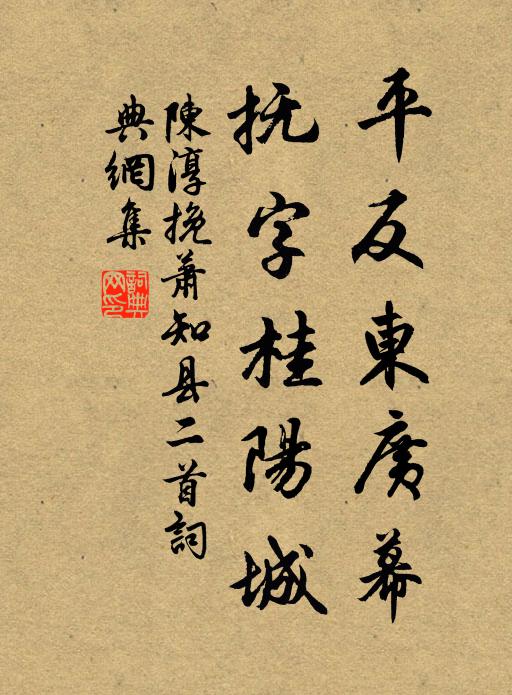 平反東廣幕
抚字桂陽城
陳淳挽萧知县二首詞
典網集
詞典网印